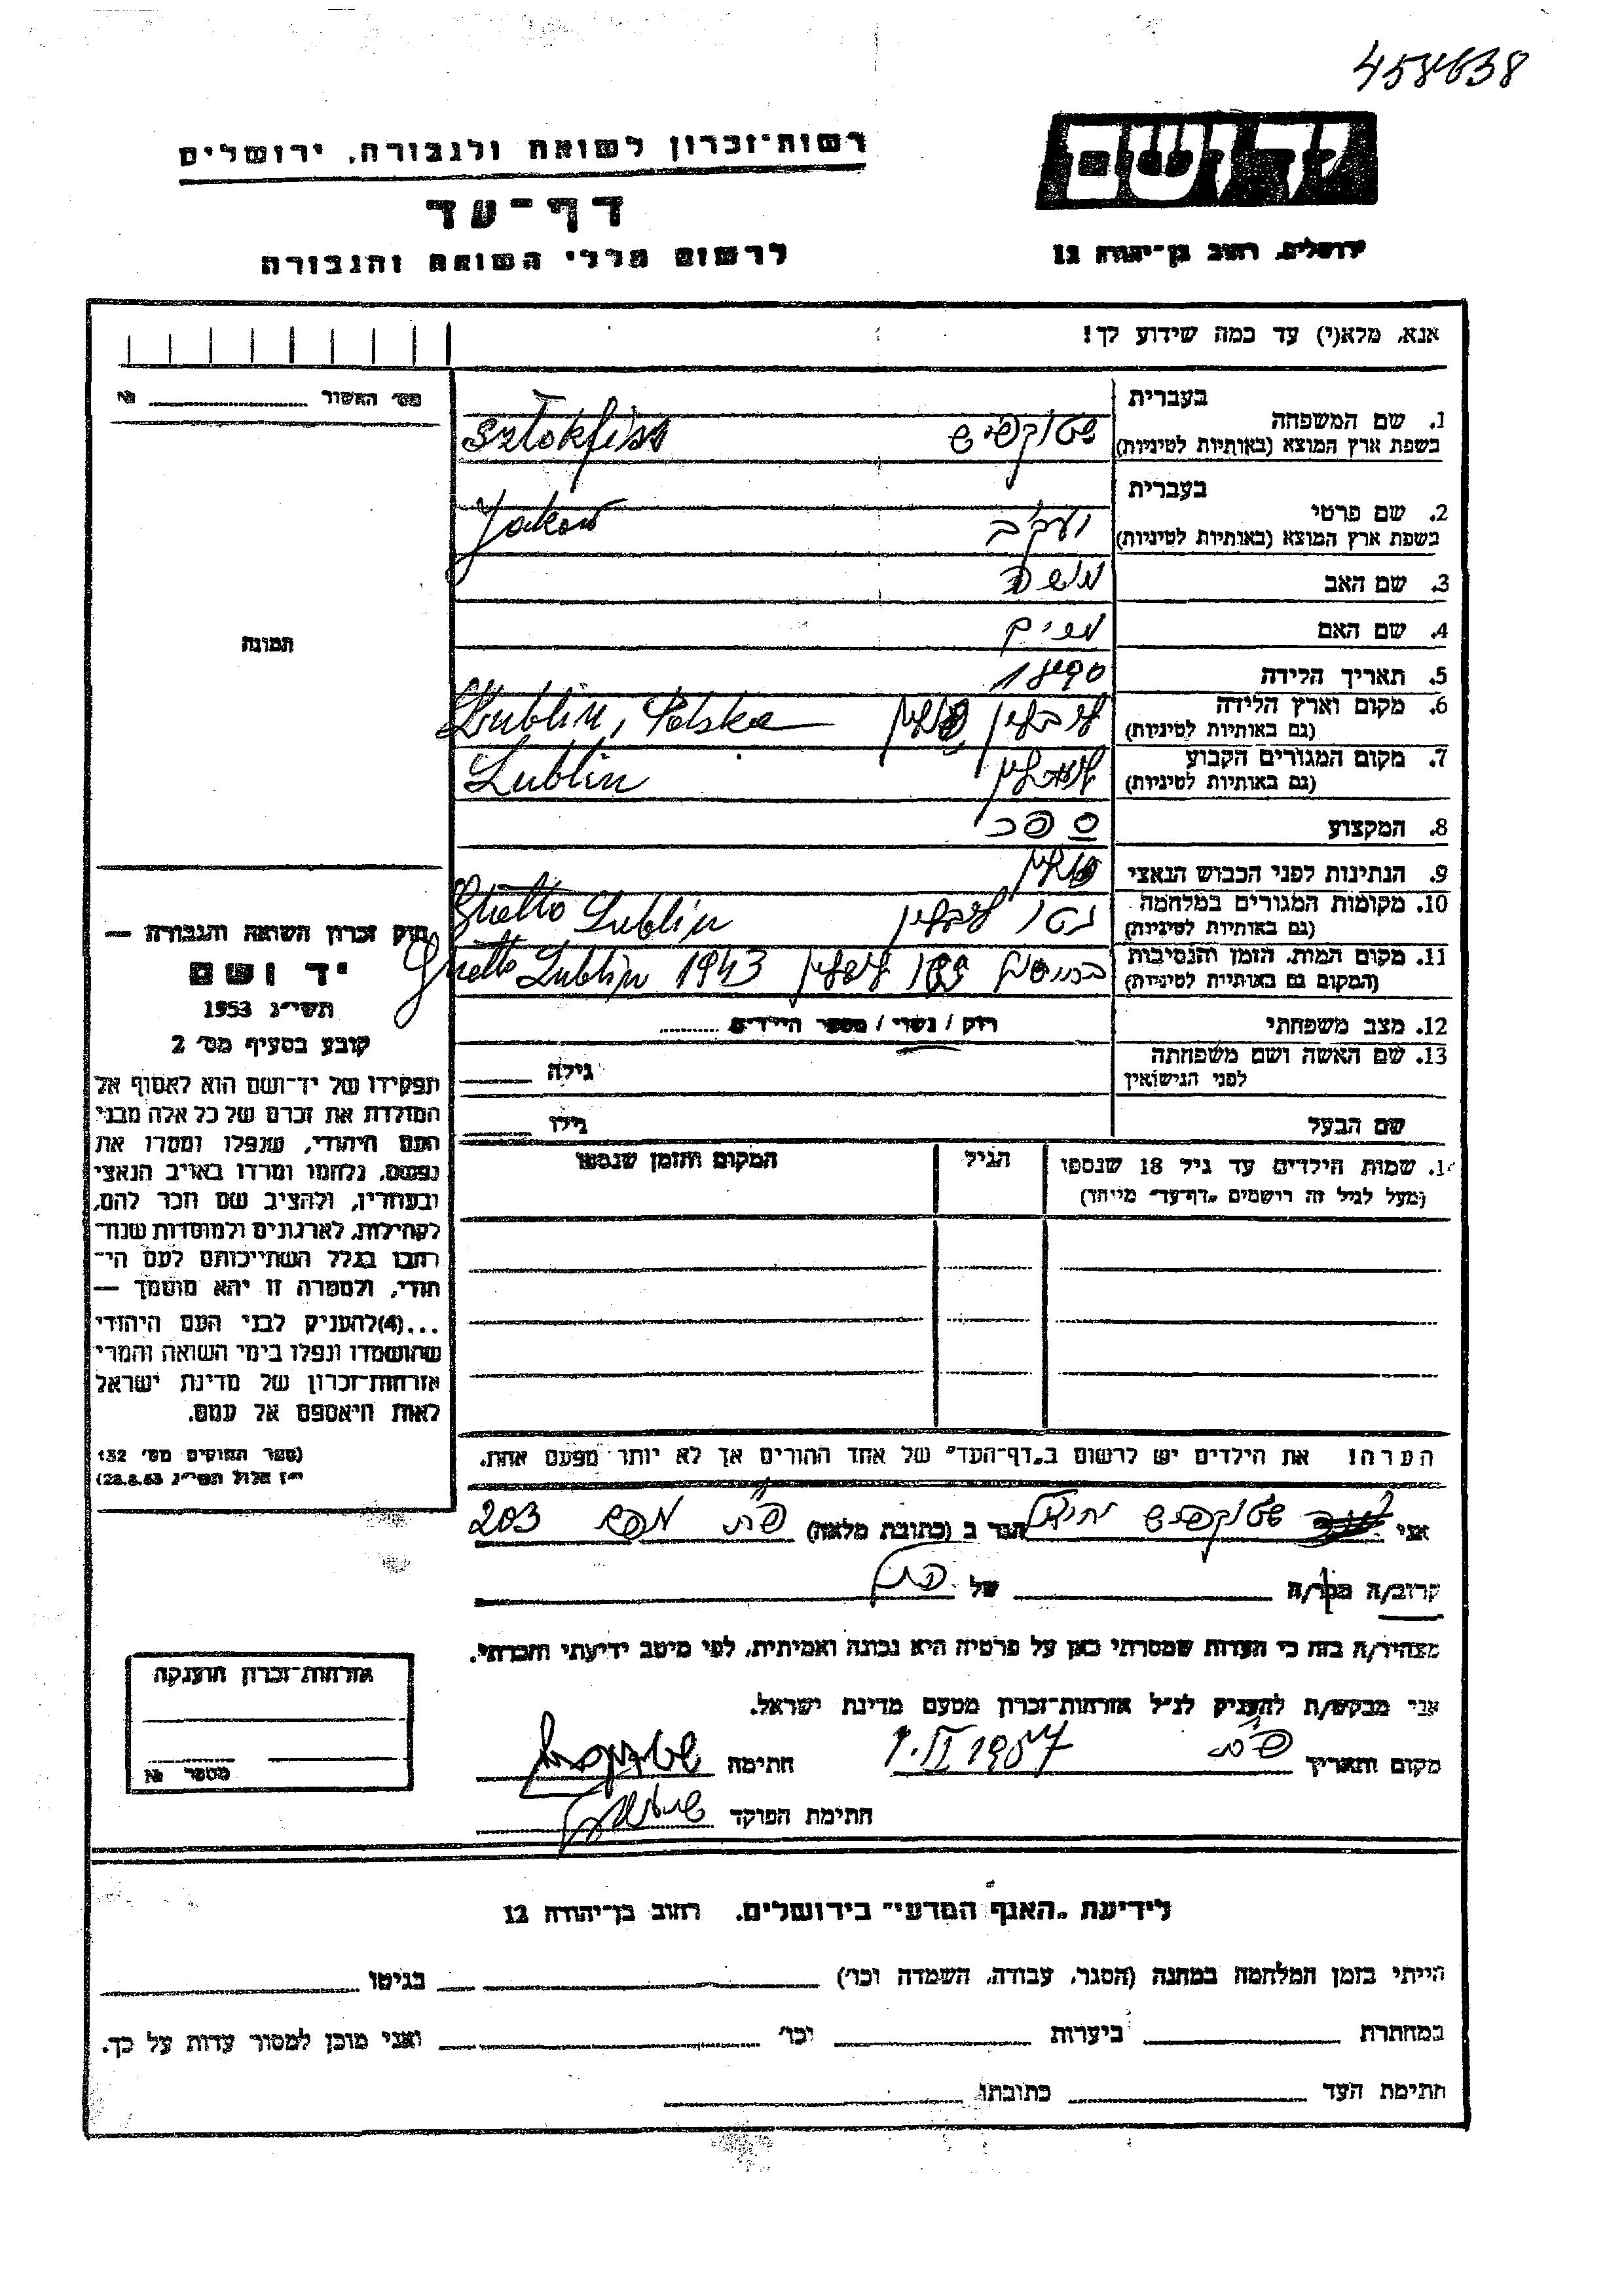 458638
רשות-זכרון לשואה ולגבורה, ירושלים
יד ושם
דף-עד
לרשום חללי השואה והגבורה
ירושלים, רחוב בן-יהודה 12
אנא, מלא(י) עד כמה שידוע לך!
מס׳ האשור № 
בעברית
1. שם המשפחה
בשפת ארץ המוצא (באותיות לטיניות)
שטוקפיש Sztokfisz
בעברית
2. שם פרטי
בשפת ארץ המוצא (באותיות לטיניות)
יעקב Jakow
3. שם האב משה
4. שם האם מרים
5. תאריך הלידה
6. מקום וארץ הלידה
(גם באותיות לטיניות)
לובלין פולין Lublin, Polska
7. מקום המגורים הקבוע
(גם באותיות לטיניות)
לובלין Lublin
8. המקצוע ספר
9. הנתינות לפני הכבוש הנאצי פולין
10. מקומות המגורים במלחמה
(גם באותיות לטיניות)
גטו לובלין Ghetto Lublin
11. מקום המות, הזמן והנסיבות
(המקום גם באותיות לטיניות)
לובלין Ghetto Lublin 1943
12. מצב משפחתי רווק / נשוי / מספר הילדים
13. שם האשה ושם משפחתה
לפני הנישואין
גילה
שם הבעל גילו
14. שמות הילדים עד גיל 18 שנספו
(מעל לגיל זה רישמים „דף-עד״ מיוחד)
הגיל
המקום והזמן שנספו
הערה! את הילדים יש לרשום ב„דף-העד״ של אחד ההורים אך לא יותר מפעם אחת.
תמונה
חוק זכרון השואה והגבורה —
יד ושם
תשי״ג 1953
קובע בסעיף מס׳ 2
תפקידו של יד-ושם הוא לאסוף אל
המולדת את זכרם של כל אלה מבני
העם היהודי, שנפלו ומסרו את
נפשם, נלחמו ומרדו באויב הנאצי
ובעוזריו, ולהציב שם וזכר להם,
לקהילות, לארגונים ולמוסדות שנח-
רבו בגלל השתייכותם לעם הי-
הודי, ולמטרה זו יהא מוסמך —
...(4) להעניק לבני העם היהודי
שהושמדו ונפלו בימי השואה והמרי
אזרחות-זכרון של מדינת ישראל
לאות היאספם אל עמם.
(ספר החוקים מס׳ 132
י״ז אלול תשי״ג 28.8.53)
אני שטוקפיש הגר ב (כתובת מלאה) 203
קרוב/ה מכר/ה של
מצהיר/ה בזה כי העדות שמסרתי כאן על פרטיה היא נכונה ואמיתית, לפי מיטב ידיעתי והכרתי.
אני מבקש/ת להעניק לנ״ל אזרחות-זכרון מטעם מדינת ישראל.
מקום ותאריך 1957 חתימה
חתימת הפוקד
אזרחות-זכרון הוענקה
מספר №
לידיעת „האגף המדעי״ בירושלים, רחוב בן-יהודה 12
הייתי בזמן המלחמה במחנה (הסגר, עבודה, השמדה וכו׳) בגיטו
במחתרת ביערות וכו׳ ואני מוכן למסור עדות על כך.
חתימת העד כתובתו